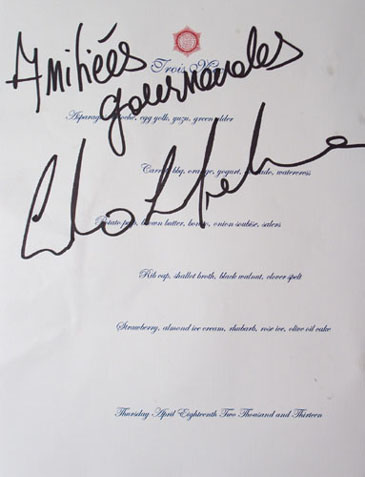 Amitiées
gourmandes
Trois
Asparagus, egg yolk, yuzu, green alder
Carrot, orange, yogurt, watercress
Potato, brown butter, onion soubise, salers
Rib cap, shallot broth, black walnut, clover spelt
Strawberry, almond ice cream, rhubarb, rose ice, olive oil cake
Thursday April Eighteenth Two Thousand and Thirteen